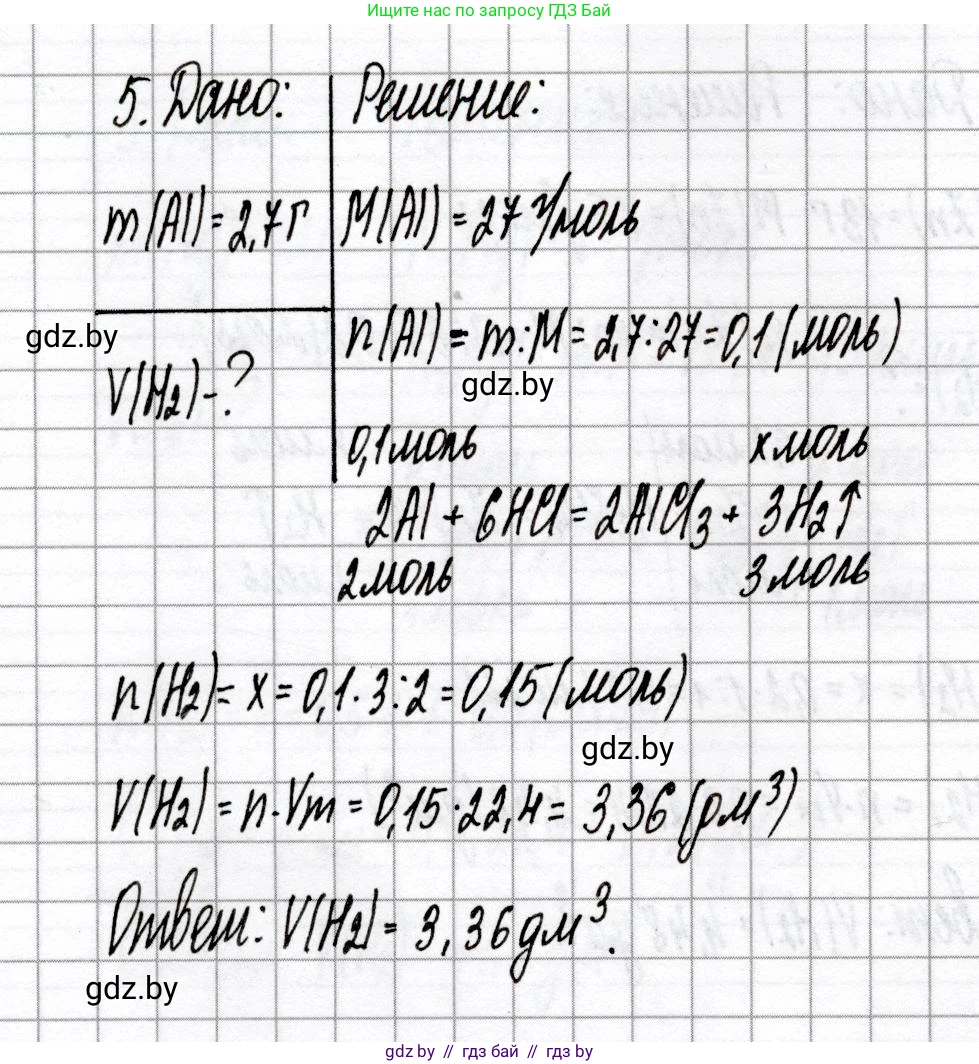 Ищите нас по запросу ГДЗ Бай
5. Дано:
Решение:
m(Al)=2,7г
M(Al)=27 г/моль
gdz.by
n(Al)= m:M= 2,7:27=0,1 (моль)
V(H₂)-?
gdz.by
0,1моль
x моль
2Al + 6HCl= 2AlCl₃ + 3H₂↑
2моль
3 моль
n(H₂)= x = 0,1·3:2 = 0,15(моль)
gdz.by
V(H₂) = n·Vm = 0,15·22,4= 3,36 (дм³)
Ответ: V(H₂) = 3,36 дм³.
gdz.by
gdz by // гдз бай // гдз by